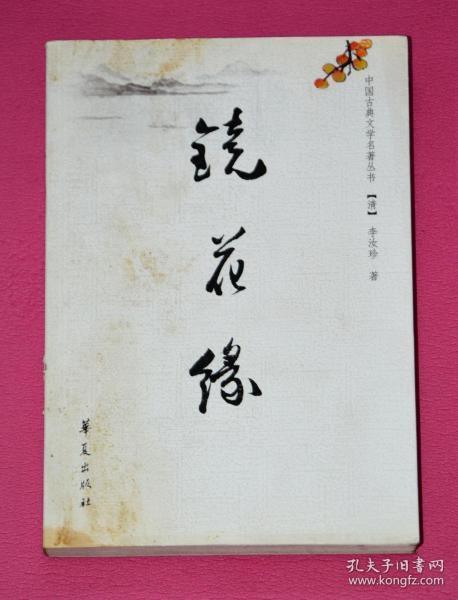 中国古典文学名著丛书 【清】 李汝珍 著
镜花缘
華夏出版社
孔夫子旧书网
www.kongfz.com